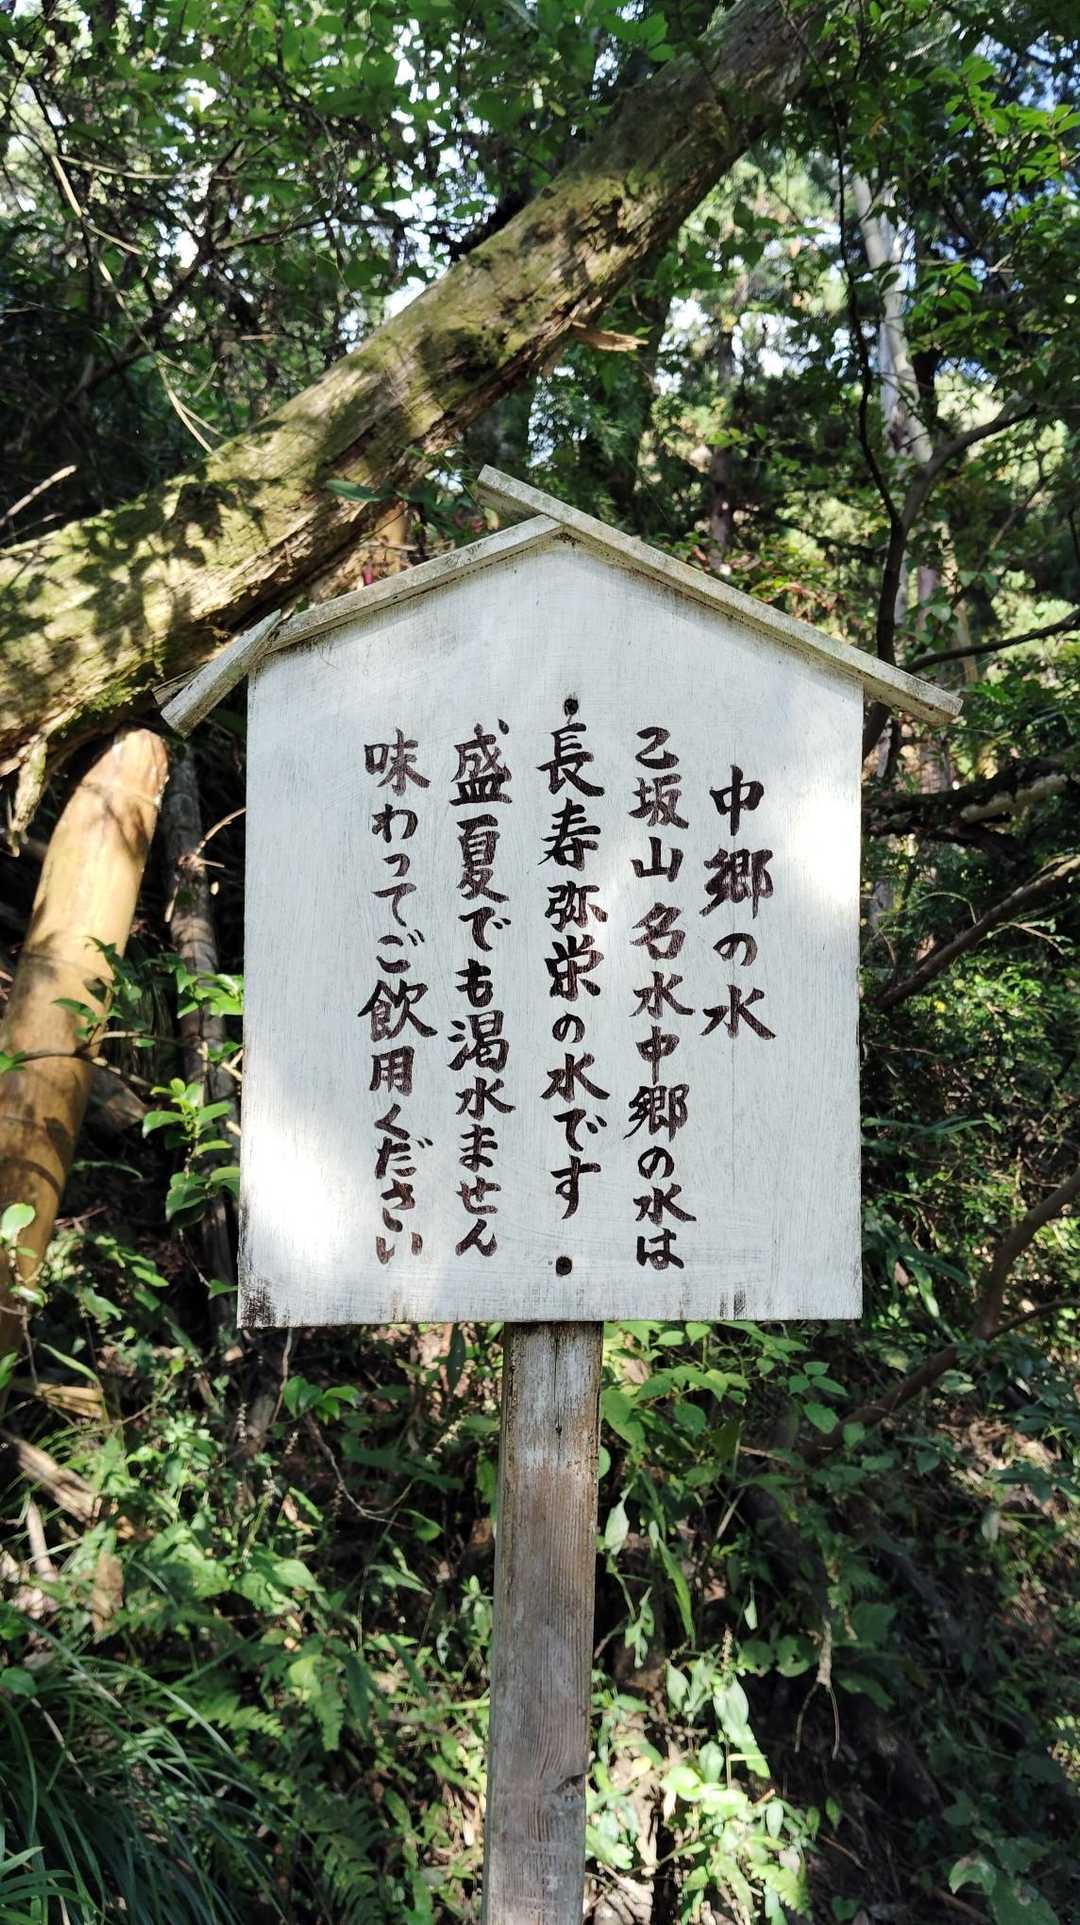 中郷の水
乙坂山名水中郷の水は
長寿弥栄の水です
盛夏でも渇水ません
味わってご飲用ください